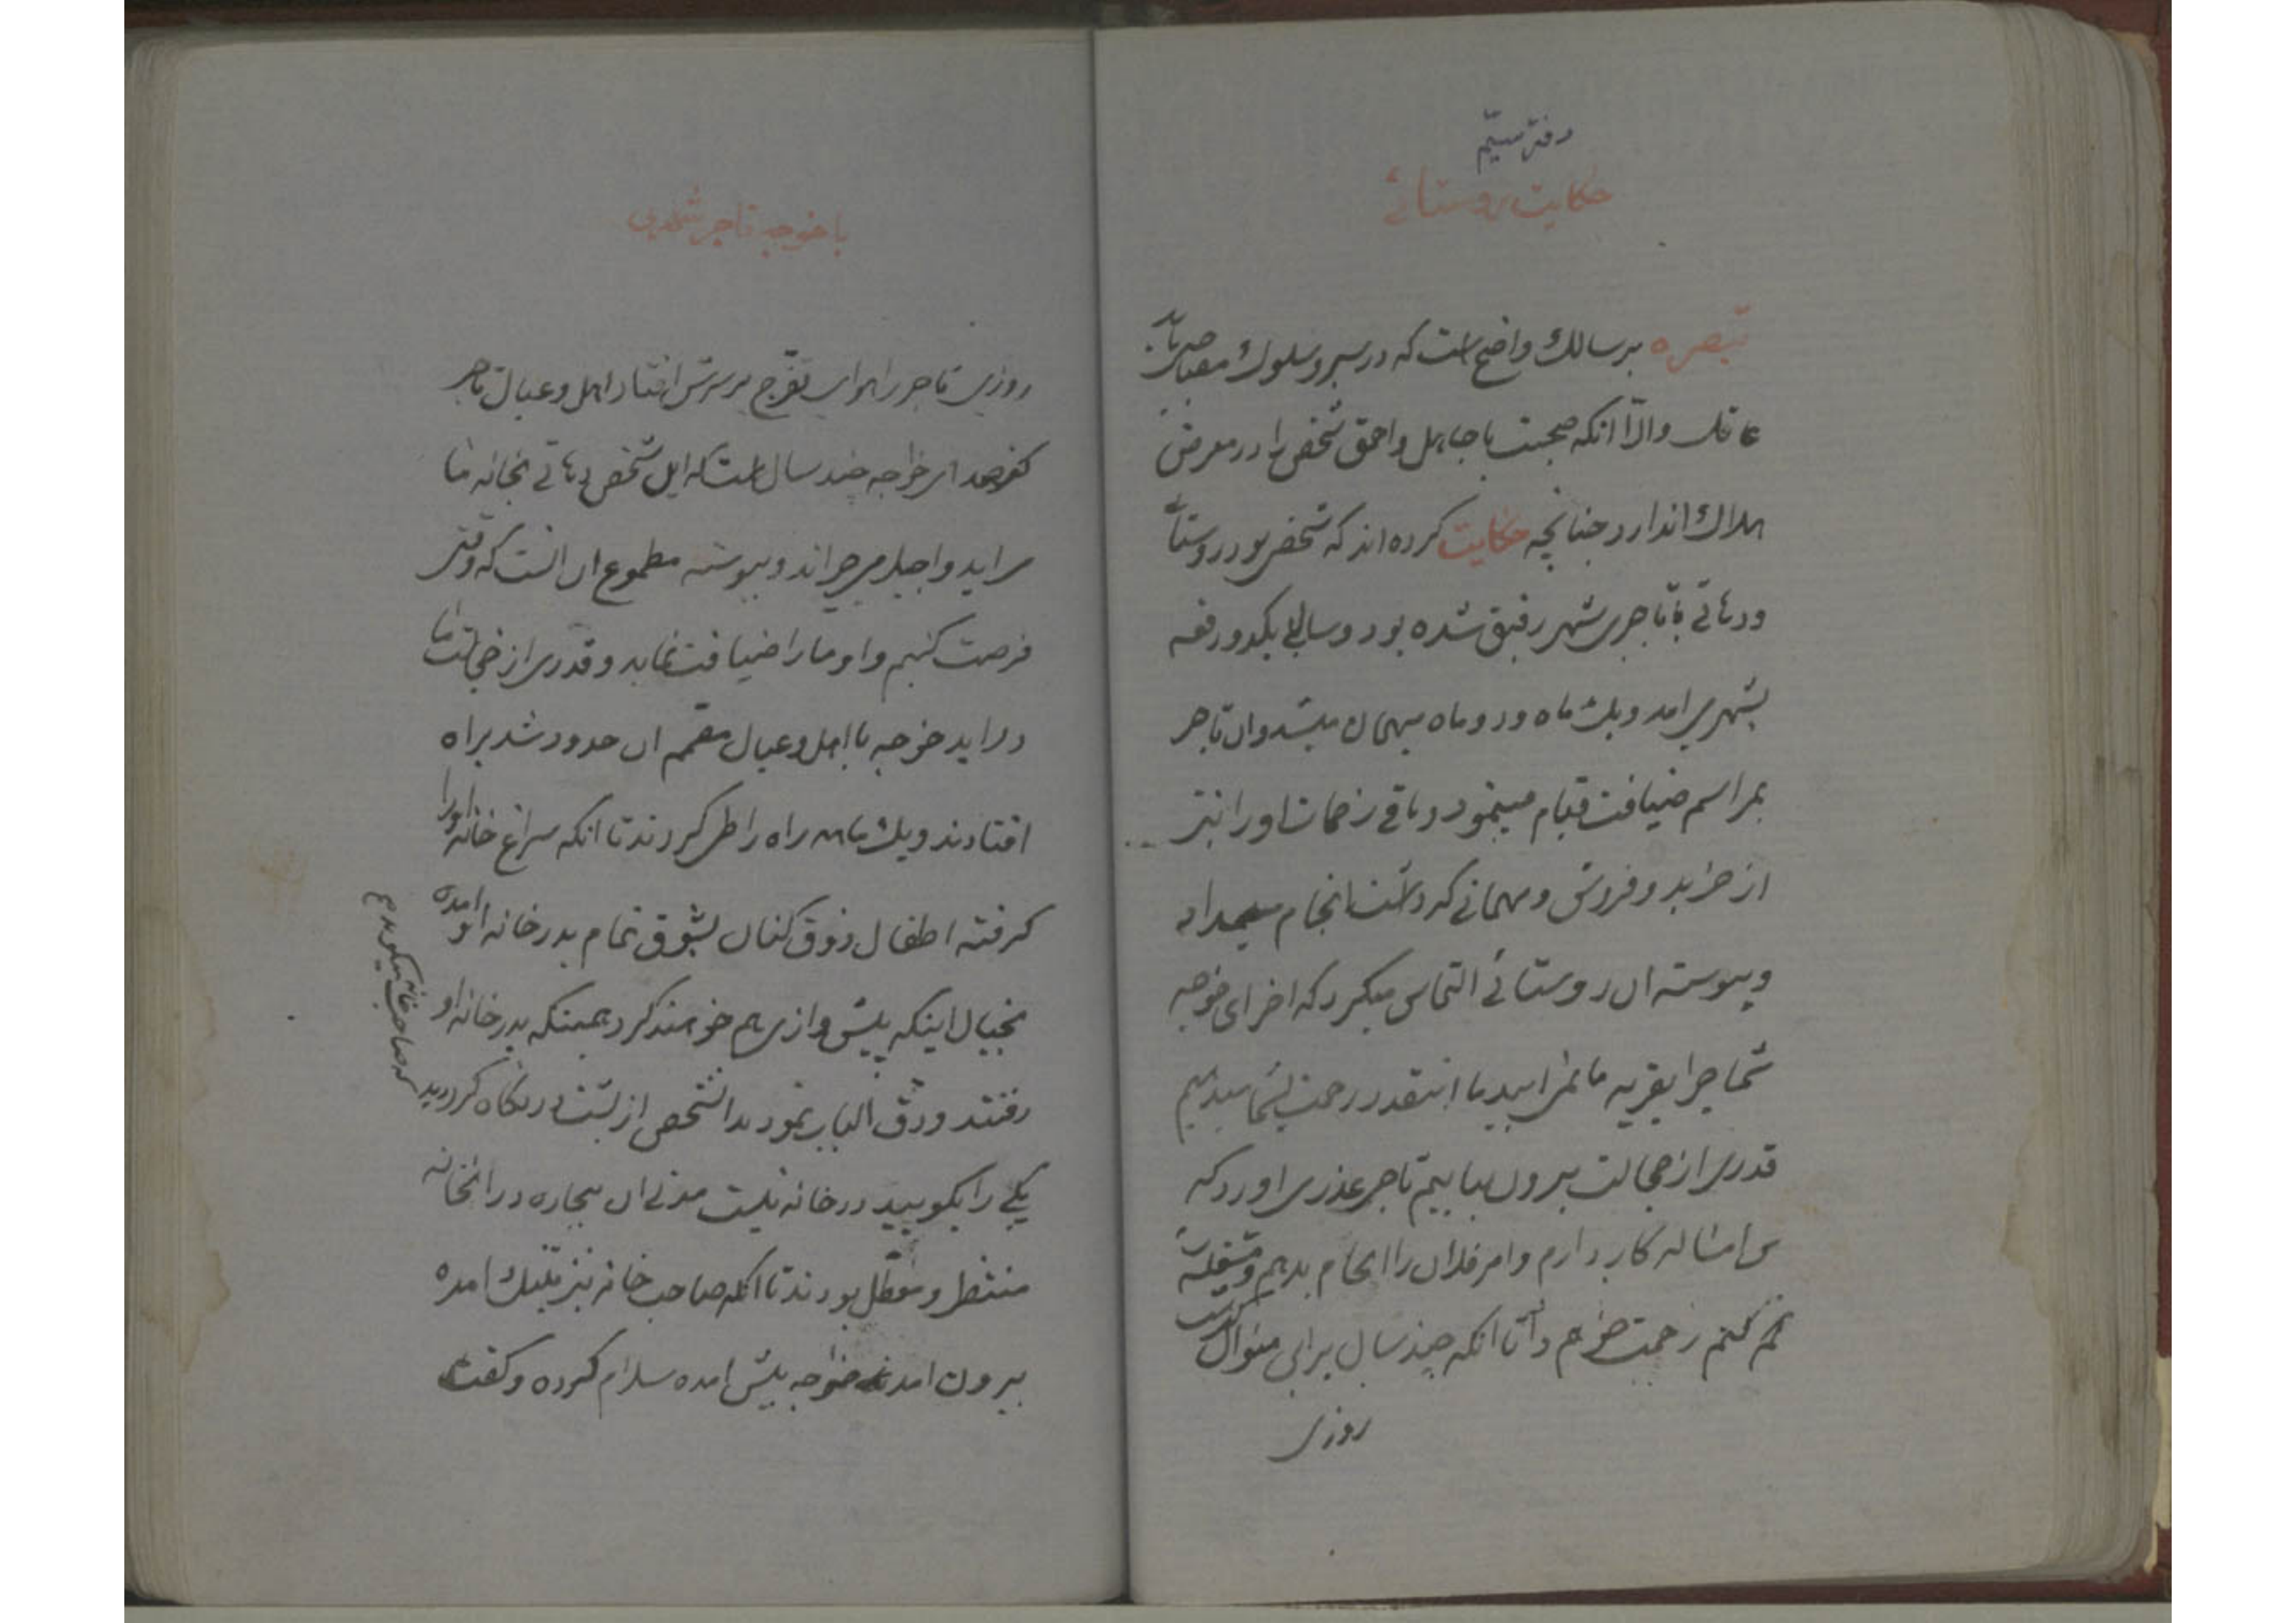 دفتر سیّم
حکایت روستائی
تبصره بر سالک واضح است که در سیر و سلوک مصاحب باید
عاقل والاّ انکه صحبت با جاهل و احمق شخص را در معرض
هلاک اندازد چنانچه حکایت کرده اند که شخصی بود روستائی
ودهاتی با تاجری شهر رفیق شده بود و سالی یکدو دفعه
بشهر می امد و یک ماه و دو ماه میهمان میشد وان تاجر
بمراسم ضیافت قیام مینمود و باقی زحمات او را نیز
از خرید و فروش و مهمانی که داشت انجام میداد
و پیوسته ان روستائی التماس میکرد که اخر ای خوجه
شما چرا بقریه ما نمی ایید ما اینقدر زحمت بشما میدهیم
قدری از خجالت بیرون بیاییم تاجر عذری اورد که
من امساله کار دارم وامر فلان را انجام بدهم و مشغله
کنم زحمت خواهم داد تا انکه چند سال براین منوال گذشت
روزی
با خوجه تاجر شهری
روزی تاجر را هوای تفرّج بر سرش افتاد اهل وعیال تاجر
گفتند ای خواجه چند سال است که این شخص دهاتی بخانه ما
می اید و اجیل میچراند و پیوسته مطموع ان است که وقتی
فرصت کنیم و او ما را ضیافت نماید و قدری از خجالت ما
دراید خوجه با اهل وعیال مصمم ان حدود شد براه
افتادند و یک ماه راه را طی کردند تا انکه سراغ خانه او را
گرفته اطفال ذوق کنان بشوق تمام بدر خانه او امده
بخیال اینکه پیشوازی هم خواهند کرد همینکه بدر خانه او
رفتند و دق الباب نمودند انشخص از پشت در نگاه کرد دید
که صاحبخانه میگوید
یکی را بگویید در خانه نیست مدتی ان بیچاره در انخانه
منتظر و معطل بودند تا انکه صاحب خانه نیز امده
بیرون امد خواجه پیش امده سلام کرده و گفت